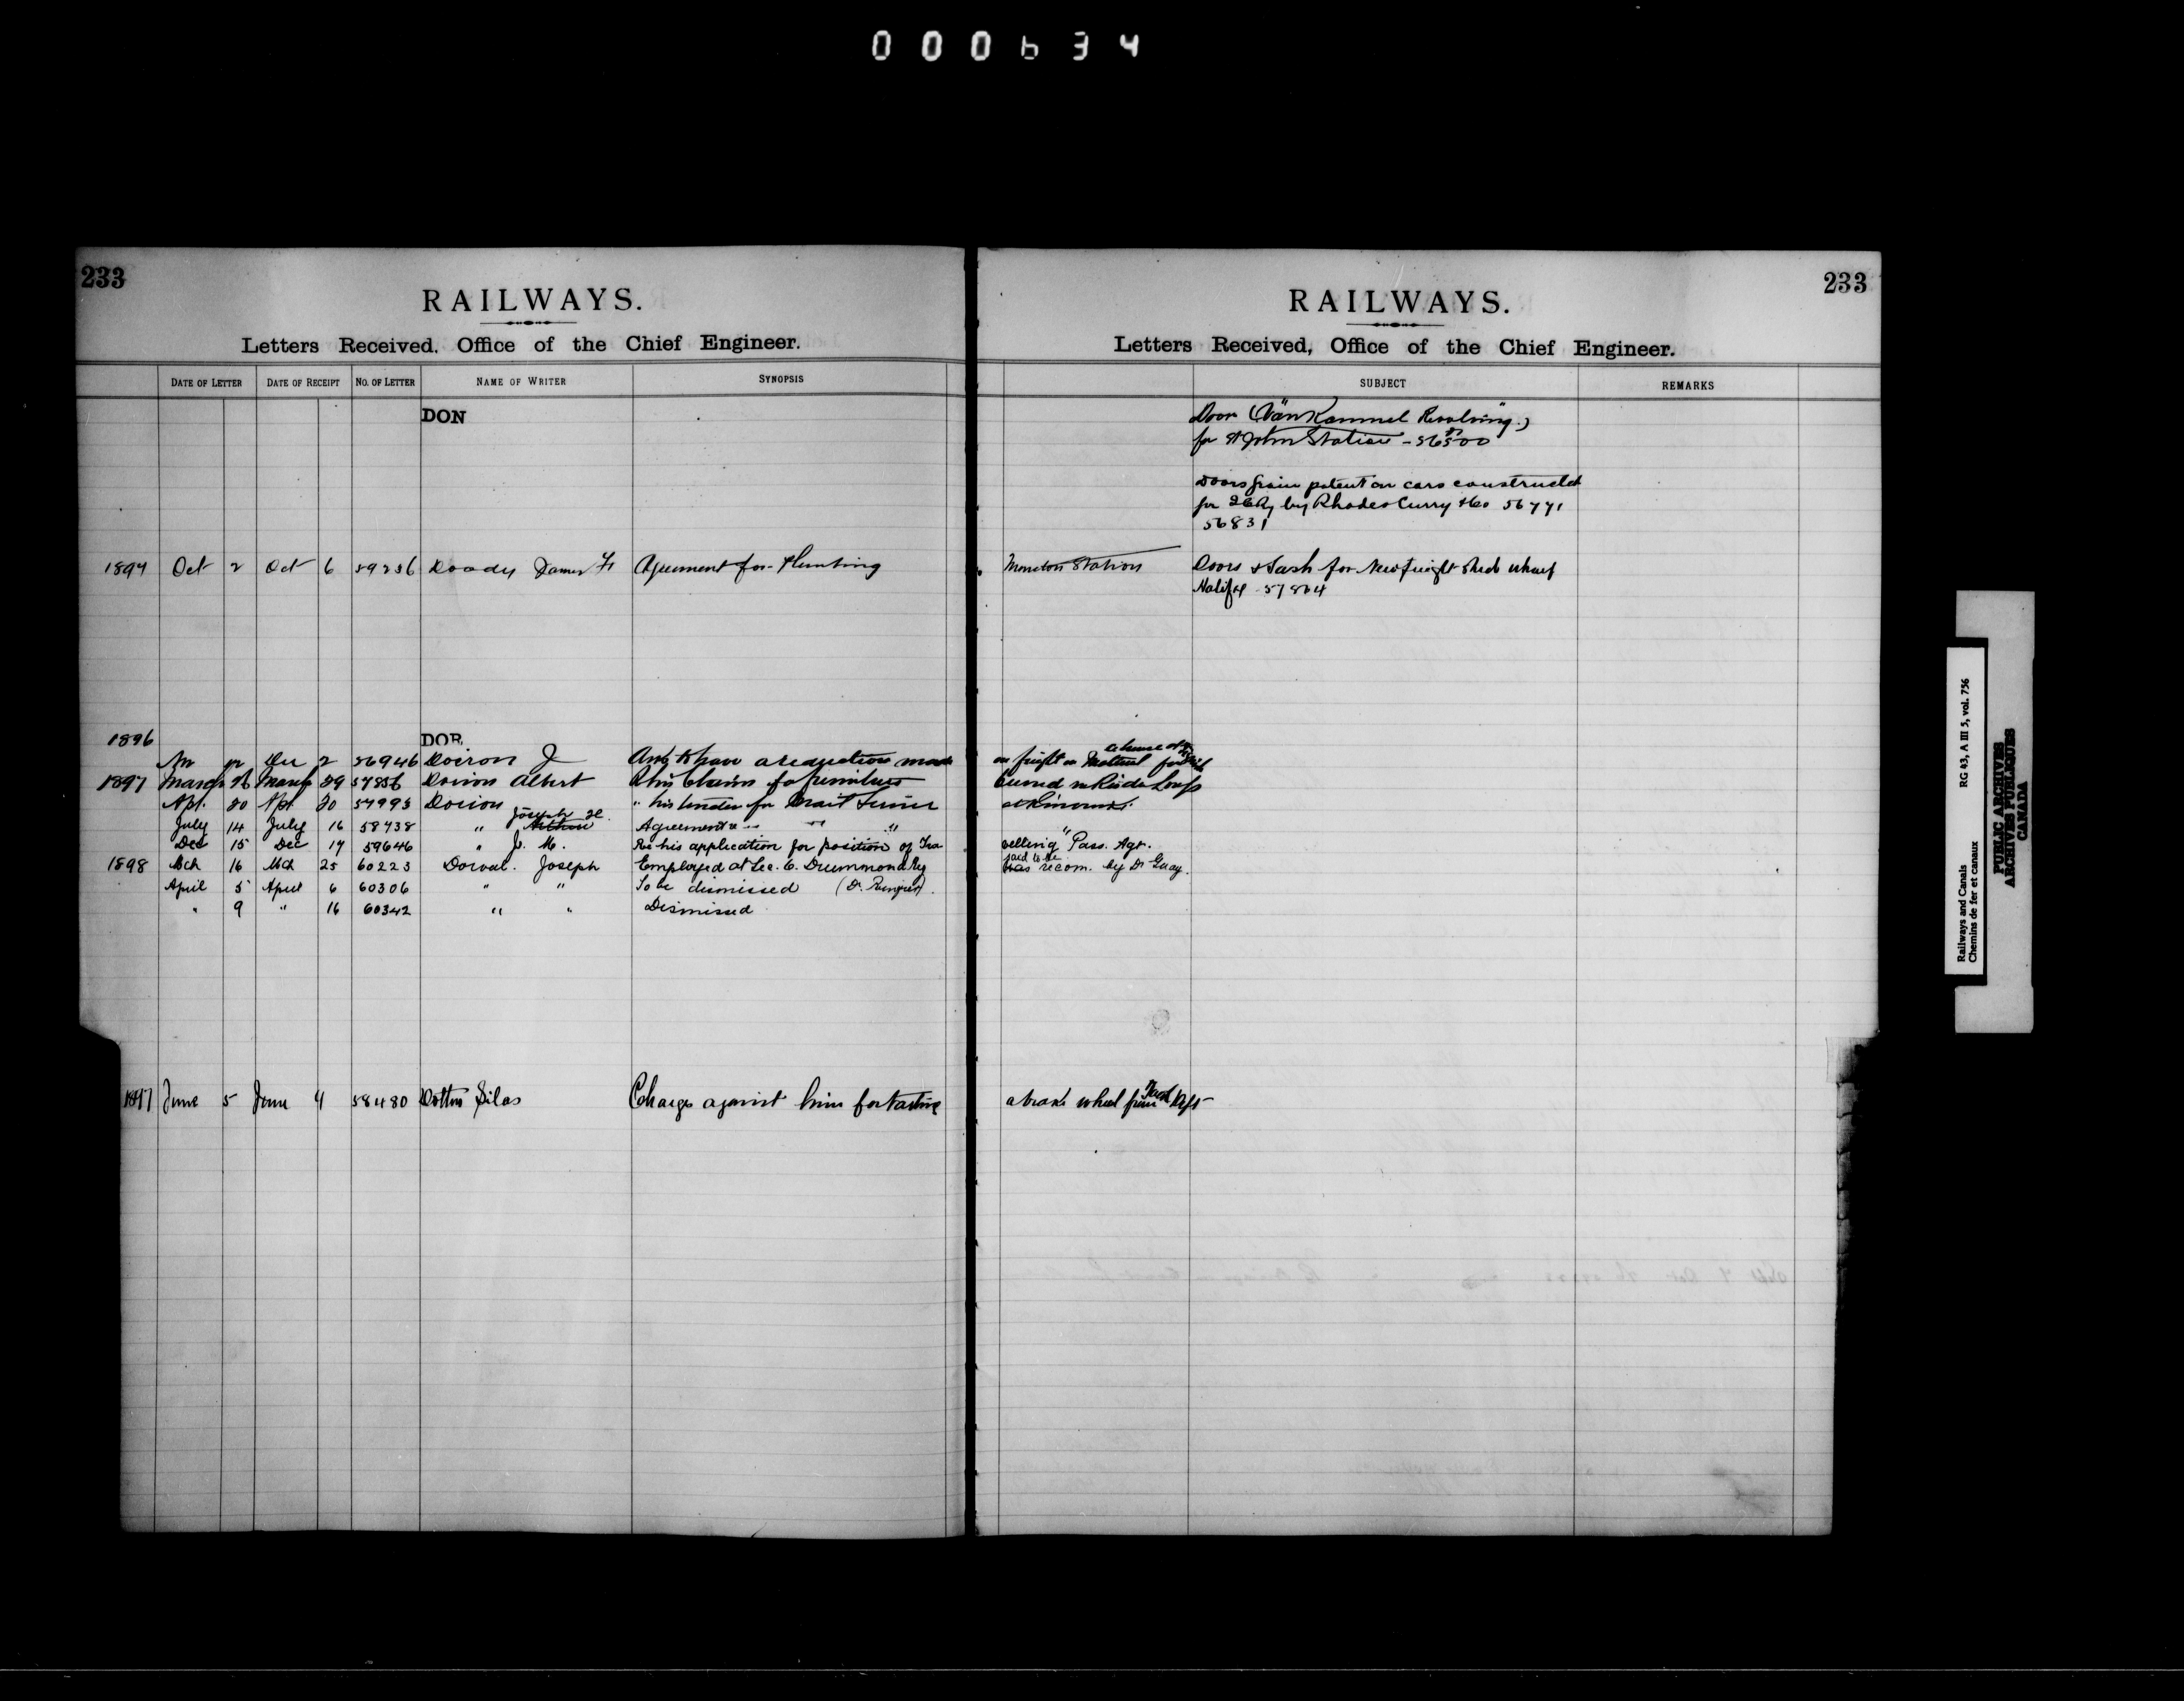 000634
233
RAILWAYS.
Letters Received. Office of the Chief Engineer.
DATE OF LETTER DATE OF RECEIPT NO. OF LETTER NAME OF WRITER SYNOPSIS
DON
1897 Oct 2 Oct 6 59236 Doody James H Agreement for Plumbing
1896
DOR
Dec 2 56946 Doiron J Ask to have a reduction made
1897 March 26 March 29 57856 Doiron Albert His Claim for furniture
Apl. 20 Apl. 20 57993 Dorion " his tender for Mail Service
Joseph H.
July 14 July 16 58738 " Arthur Agreement " " "
Dec 15 Dec 17 59646 " J. M. Re his application for position of Tra
1898 Mch 16 Mch 25 60223 Dorval. Joseph Employed at Sec. 6. Drummond Ry
April 5 April 6 60306 " " To be dismissed (D. Pottinger).
" 9 " 16 60342 " " Dismissed
1897 June 5 June 7 58480 Silas Charge against him for taking
233
RAILWAYS.
Letters Received, Office of the Chief Engineer.
SUBJECT REMARKS
Door (Van Kannel "Revolving")
for St John Station - 56500
Doors grain patent on cars constructed
for ICRy by Rhodes Curry & Co 56771
56831
Moncton Station Doors & Sash for New freight Shed wharf
Halifax 57864
on freight on material for
burned in Riviere du Loup
at Rimouski.
velling "Pass. Agt.
said to be
has recom. by Dr Guay.
a brake wheel from Yard
Railways and Canals RG 43, A III 5, vol. 756
Chemins de fer et canaux
PUBLIC ARCHIVES
ARCHIVES PUBLIQUES
CANADA